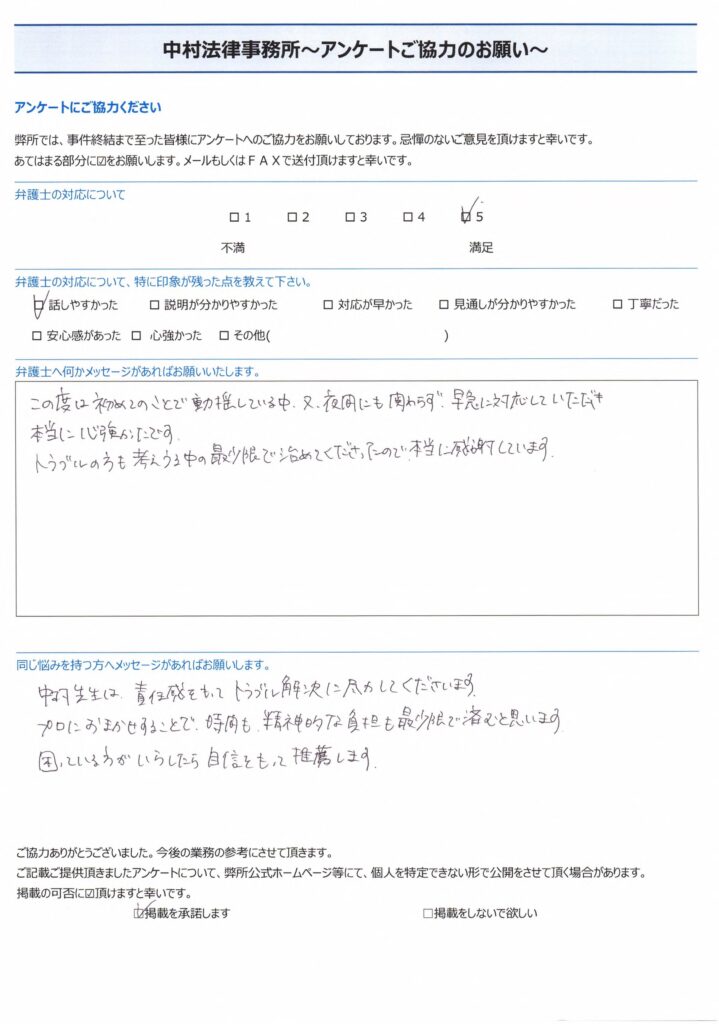 中村法律事務所～アンケートご協力のお願い～
アンケートにご協力ください
弊所では、事件終結まで至った皆様にアンケートへのご協力をお願いしております。忌憚のないご意見を頂けますと幸いです。
あてはまる部分に☑をお願いします。メールもしくはＦＡＸで送付頂けますと幸いです。
弁護士の対応について
□ 1 □ 2 □ 3 □ 4 ☑ 5
不満 満足
弁護士の対応について、特に印象が残った点を教えて下さい。
☑ 話しやすかった □ 説明が分かりやすかった □ 対応が早かった □ 見通しが分かりやすかった □ 丁寧だった
□ 安心感があった □ 心強かった □ その他( )
弁護士へ何かメッセージがあればお願いいたします。
この度は初めてのことで動揺している中、又、夜間にも関わらず、早急に対応していただき
本当に心強かたです。
トラブルの方も考えうる中の最少限で治めてくださったので、本当に感謝しています。
同じ悩みを持つ方へメッセージがあればお願いします。
中村先生は、責任感をもってトラブル解決に尽力してくださいます。
プロにおまかせすることで、時間も、精神的な負担も最少限で済むと思います。
困っている方がいらしたら自信をもって推薦します。
ご協力ありがとうございました。今後の業務の参考にさせて頂きます。
ご記載ご提供頂きましたアンケートについて、弊所公式ホームページ等にて、個人を特定できない形で公開をさせて頂く場合があります。
掲載の可否に☑頂けますと幸いです。
☑掲載を承諾します □掲載をしないで欲しい